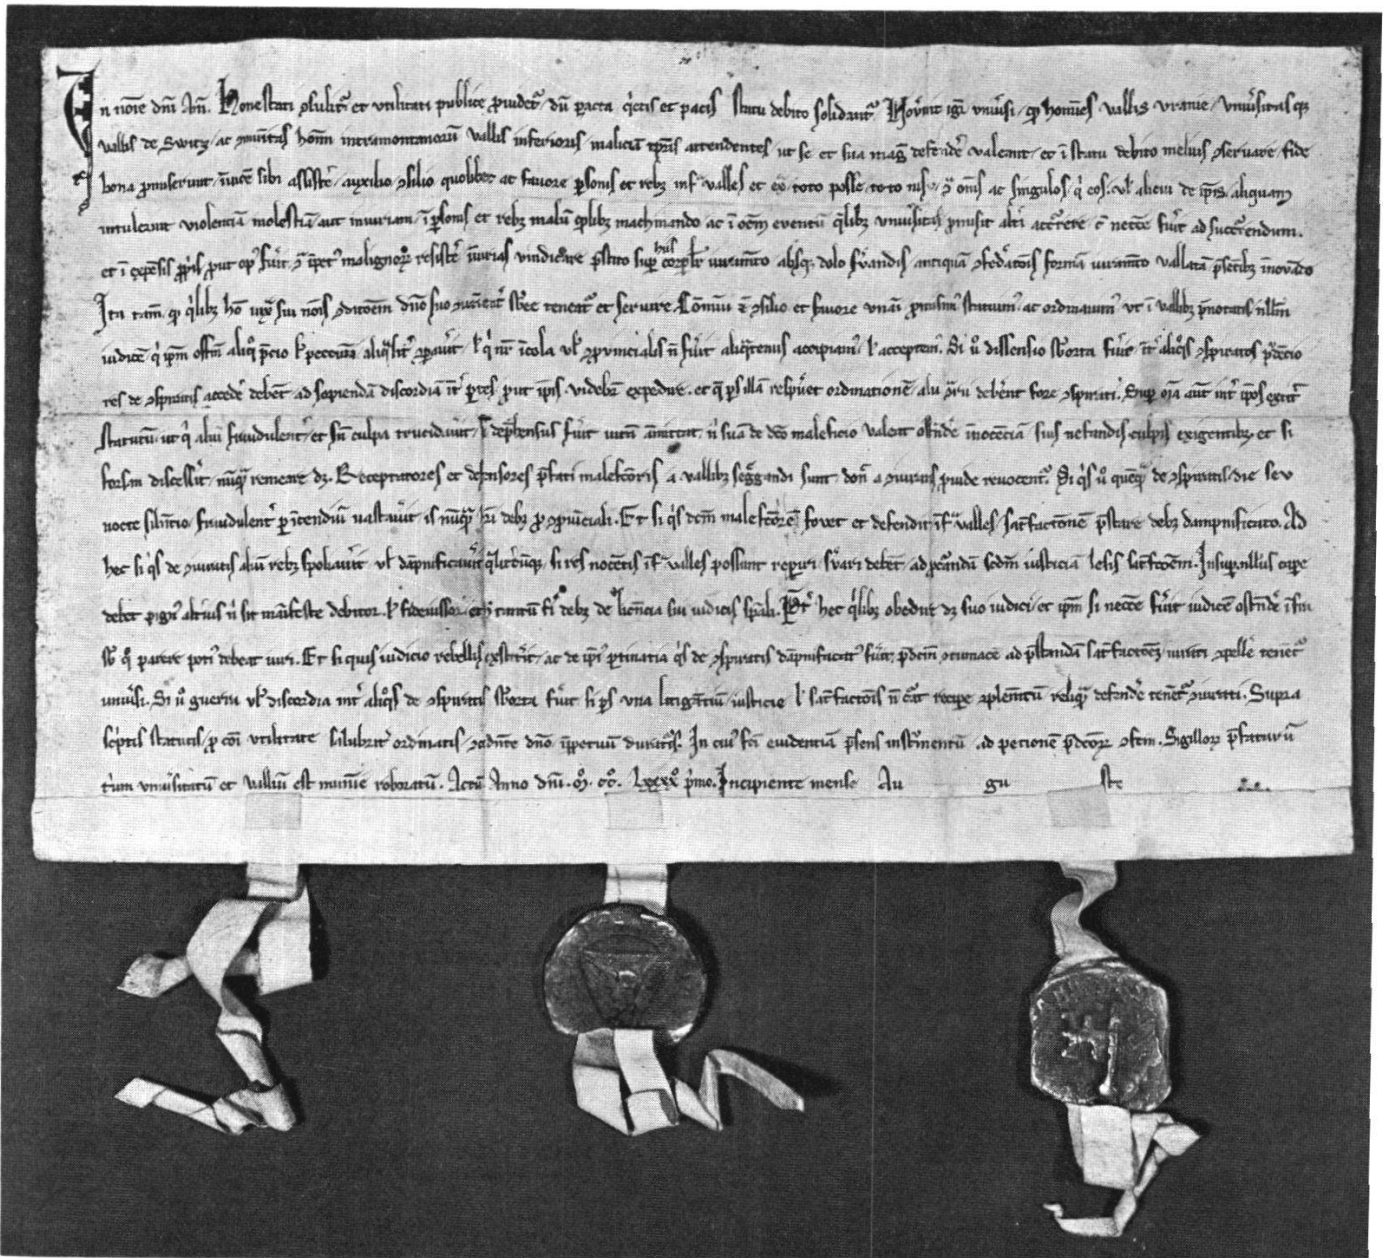 In noīe dn̄i Am̄. Honestati ꝯsulit᷑ et vtilitati publice ꝓuidet᷑ dū pacta qͥetis et pacis statu debito solidant᷑ Noṽint igͥ vniṽsi, ꝙ homīes vallis vranie, vniṽsitasqꝫ
vallis de Switz, ac ꝯmūitas hoīm intramontanorū vallis inferioris, maliciā tꝑis attendentes, ut se et sua mag᷑ defende᷑ valeant, et ī statu debito melius ꝯseruare, fide
bona ꝓmiserunt, īuicē sibi assiste᷑, auxilio, ꝯsilio quolibet ac fauore ꝑsonis et rebꝫ infᷓ valles et ex᷑ toto posse, toto nisu, ꝯtᷓ om̄s ac singulos, qͥ eos, vl̄ alicui de ip̄is aliquam
intulerint violenciā, molestiā, aut iniuriam, ī ꝑsonis et rebꝫ malū qͦdlibꝫ machinando, ac ī oēm euentū qͥlibꝫ vniṽsitas ꝓmisit alt͛i accͥrere cū necēe fũit ad succͥrendum.
et ī expēsis ꝓpͥis ꝓut opꝰ fũit, ꝯtᷓ īpetꝰ malignoꝝ resiste᷑, īiurias vindicare pͤstito suꝑ hiis corꝑalit͛ iuramēto absqꝫ dolo s͛uandis, antiquā ꝯfed͛atōis formā iuramēto vallatā pͤsētibꝫ īnouādo
Ita tam̄, ꝙ qͥlibꝫ hō iuxᷓ sui noīs ꝯditōem dn̄o suo ꝯueniēt͛ sb̄ee teneat᷑ et seruire, Cōmuni eᷓ ꝯsilio et fauore vnāi, ꝓmisimꝰ statuimꝰ ac ordinauimꝰ, vt ī vallibꝫ pͤnotatis, nllm̄
iudicē, qͥ ip̄m offm̄ aliqͦ pͤcio vl̄ peccunia aliqᷓlit͛ ꝯpaũit, vl̄ qͥ nr̄ īcola vl̄ ꝓuincialis nō fũit aliqᷓtenus accipiamꝰ, vl̄ acceptem̄. Si vͦ dissensio sb̄orta fũit, int͛ aliqͦs ꝯspiratos pͤdēcio
res de ꝯspiratis accede᷑ debēt ad sopiendā discordiā int͛ ꝑtes ꝓut ip̄is videbit᷑ expedire, et qͤ ꝑs illā respũet ordinationē, alii ꝯtͣrii deberēt fore ꝯspirati, Suꝑ oīa aūt int͛ ip̄os extit͛
statutū, ut qͥ aliū fraudulent͛, et sn̄ culpa trucidauit, si depͤhensus fũit vitā āmittat, nͥ suā de dc̄o maleficio valeat ostende᷑ innocēciā, suis nefandis culpis exigentibꝫ, et si
forsan discess͛it, nūqᷓ remeare dꝫ. Receptatores et defensores pͤfati malefc̄oris a vallibꝫ seg͛gandi sunt, donͤ a ꝯiuratis ꝓuide reuocent᷑. Si qͥs vͦ quēqᷓ de ꝯspiratis, die seu
nocte silentio, fraudulent͛ ꝑ īcendiū vastaũit, is nūqᷓ h͛i debꝫ ꝓ ꝯꝓuīciali. Et si qͥs dc̄m malefc̄orē fouet et defendit infᷓ valles, satisfactionē pͤstare debꝫ dampnificato. Ad
hec si qͥs de ꝯiuratis aliū rebꝫ spoliaũit vl̄ dāpnificaũit qᷓlit͛cūqꝫ, si res nocētis infᷓ valles possunt reꝑiri, s͛uari debēt, ad ꝓcͥandā scd̄m iusticiā lesis satisfc̄ōem, Insuꝑ nllus caꝑe
debet pignꝰ alterius, nͥ sit manifeste debitor, vl̄ fideiussor, et hͦ tantū fͥi debꝫ de licencia sui iudicis spāli. Pͤt͛ hec qͥlibꝫ obedire dꝫ suo iudici, et ip̄m si necēe fũit iudicē ostende᷑ infᷓ
sb̄ qͦ parere potiꝰ debeat iuri. Et si quis iudicio rebellis exstit͛it, ac de ipͥꝰ ꝑtinatia qͥs de ꝯspiratis dāpnificatꝰ fũit, pͤdc̄m ꝯtumacē ad pͤstandā satisfactōem, iurati ꝯpelle᷑ tenēt᷑
vniṽsi. Si vͦ guerra vl̄ discordia int͛ aliqͦs de ꝯspiratis sb̄orta fũit, si ꝑs vna litigātiū, iusticie vl̄ satisfactōis nō curat reciꝑe ꝯplemētū, reliqᷓ defende᷑ tenēt᷑ ꝯiurati. Supra
scͥptis statutis, ꝓ cōi vtilitate salubrit͛ ordinatis ꝯcedēte dn̄o īꝑpetuū duratuͥs. In cuiꝰ fc̄i euidentiā pͤsens instrͦmentū, ad peticionē pͤdc̄oꝝ ꝯfectū, Sigilloꝝ pͤfatarū
tͥum vniṽsitatū et valliū est munīe roboratū. Actū Anno dn̄i. Mͦ. CCͦ. LXXXXͦ. pͥmo. Incipiente mense Au gu sto